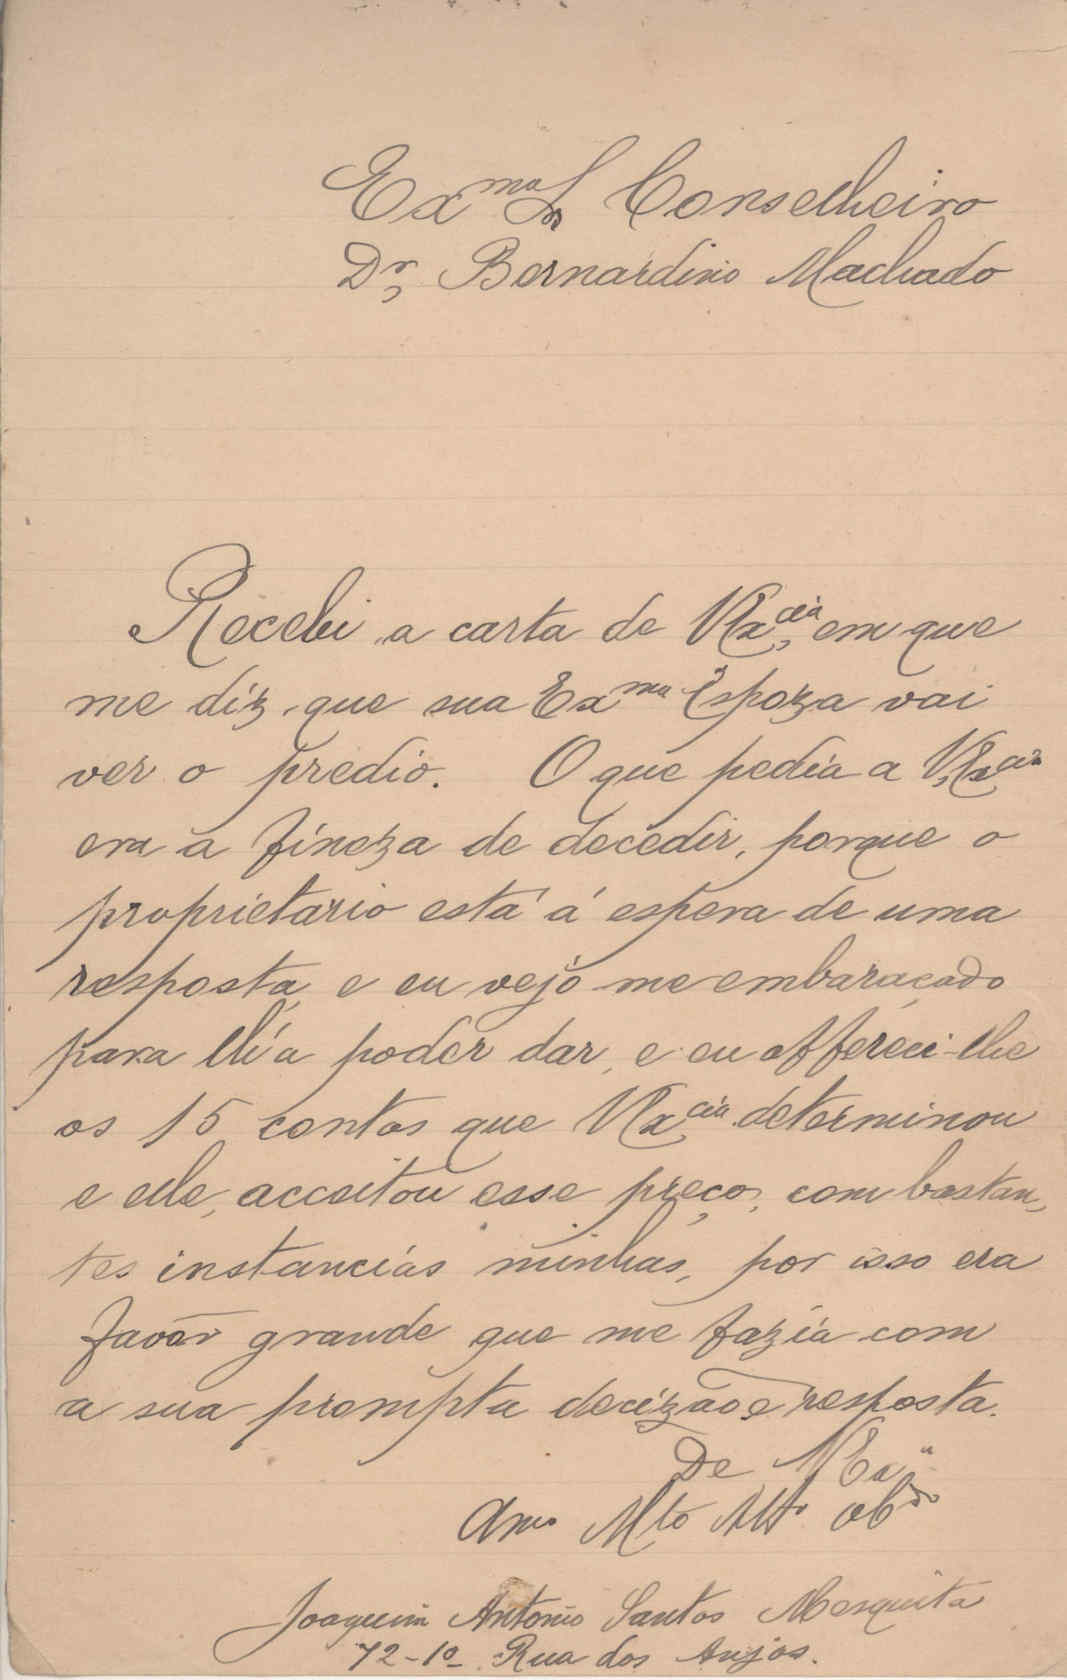 Exmo Sr Conselheiro
Dr, Bernardino Machado
Recebi a carta de VExcia, em que
me díz, que sua Exma Espoza vai
ver o predio. O que pedia a V,Excia
era a fineza de decedir, porque o
proprietario está á espera de uma
resposta, e eu vejo me embaraçado
para lh'a poder dar, e eu offereci-lhe
os 15 contos que VExcia determinou
e elle, acceitou esse preço, com bastan,
tes instancias minhas, por isso era
favôr grande que me fazia com
a sua prompta decizão e resposta.
De VExa
Amo Mto Atto obdo
Joaquim Antonio Santos Mesquita
72-1º Rua dos Anjos.